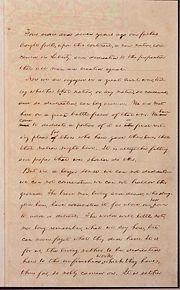 Four score and seven years ago our fathers
brought forth, upon this continent, a new nation, con-
ceived in Liberty, and dedicated to the proposition
that all men are created equal.
Now we are engaged in a great civil war, test-
ing whether that nation, or any nation, so conceived,
and so dedicated, can long endure. We are met
here on a great battle-field of that war. We have
come to dedicate a portion of it as the final rest-
ing place of those who here gave their lives that
that nation might live. It is altogether fitting
and proper that we should do this.
But in a larger sense we can not dedicate
we can not consecrate we can not hallow this
ground. The brave men, living and dead, who strug-
gled here, have consecrated it far above our poor power
to add or detract. The world will little note,
nor long remember, what we say here, but
can never forget what they did here. It is
for us, the living, rather to be dedicated
here to the unfinished which they have,
thus far, so nobly carried on. It is rather